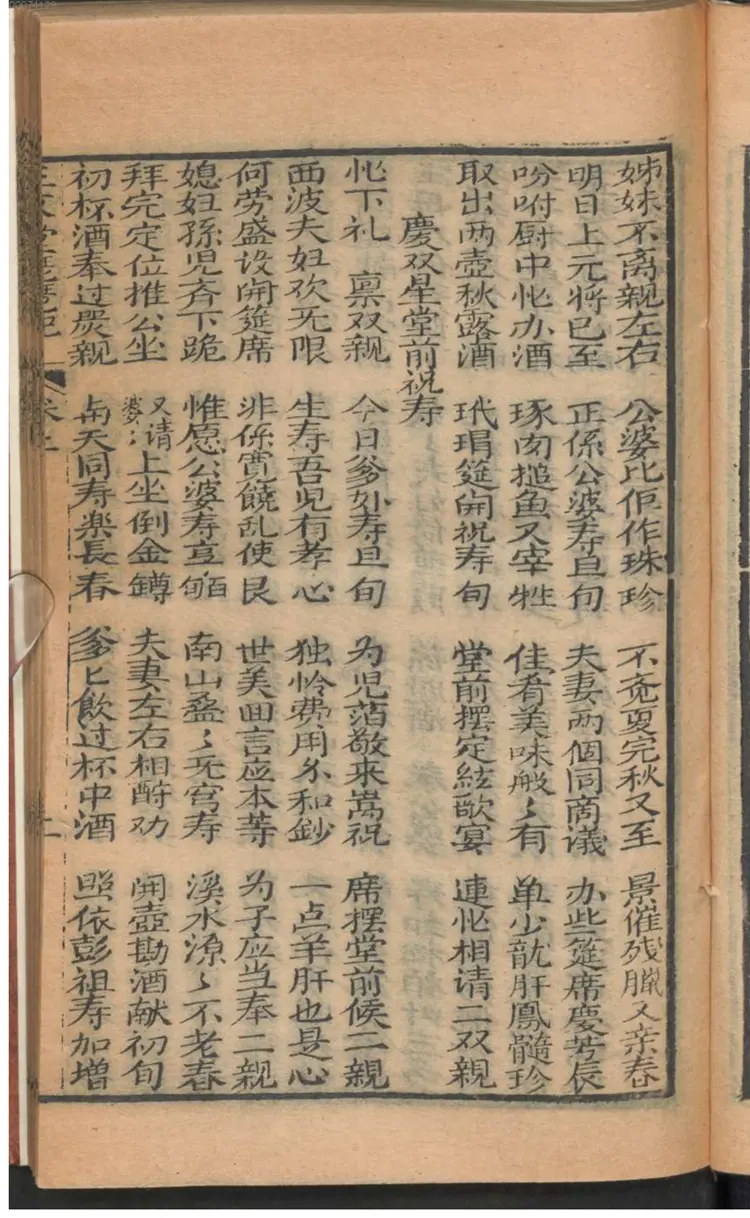 姊妹不离亲左右 公婆比佢作珠珍 不觉夏完秋又至 景催残臘又亲春
明日上元将已至 正係公婆寿旦旬 夫妻两個同商议 办些筵席慶芳辰
吩咐厨中忙办酒 琢肉搥鱼又宰牲 佳肴美味般〻有 单少龍肝鳳髓珍
取出两壶秋露酒 玳瑁筵開祝寿旬 堂前摆定絃歌宴 連忙相请二双親
慶双星堂前祝寿
忙下礼 禀双親 今日爹妳寿旦旬 为児茁敬来嵩祝 席摆堂前候二親
西波夫妇欢无限 生寿吾児有孝心 独怜费用多和鈔 一点羊肝也是心
何劳盛设開筵席 非係寛饒乱使艮 世美回言应本等 为子应当奉二親
媳妇孫児斉下跪 惟愿公婆寿亘 南山叠〻无穷寿 溪水源〻不老春
拜完定位推公坐 又请婆〻上坐倒金鐏 夫妻左右相酧劝 開壶勘酒献初旬
初杯酒奉过亲親 与天同寿楽長春 爹匕飲过杯中酒 照依彭祖寿加増
卷上